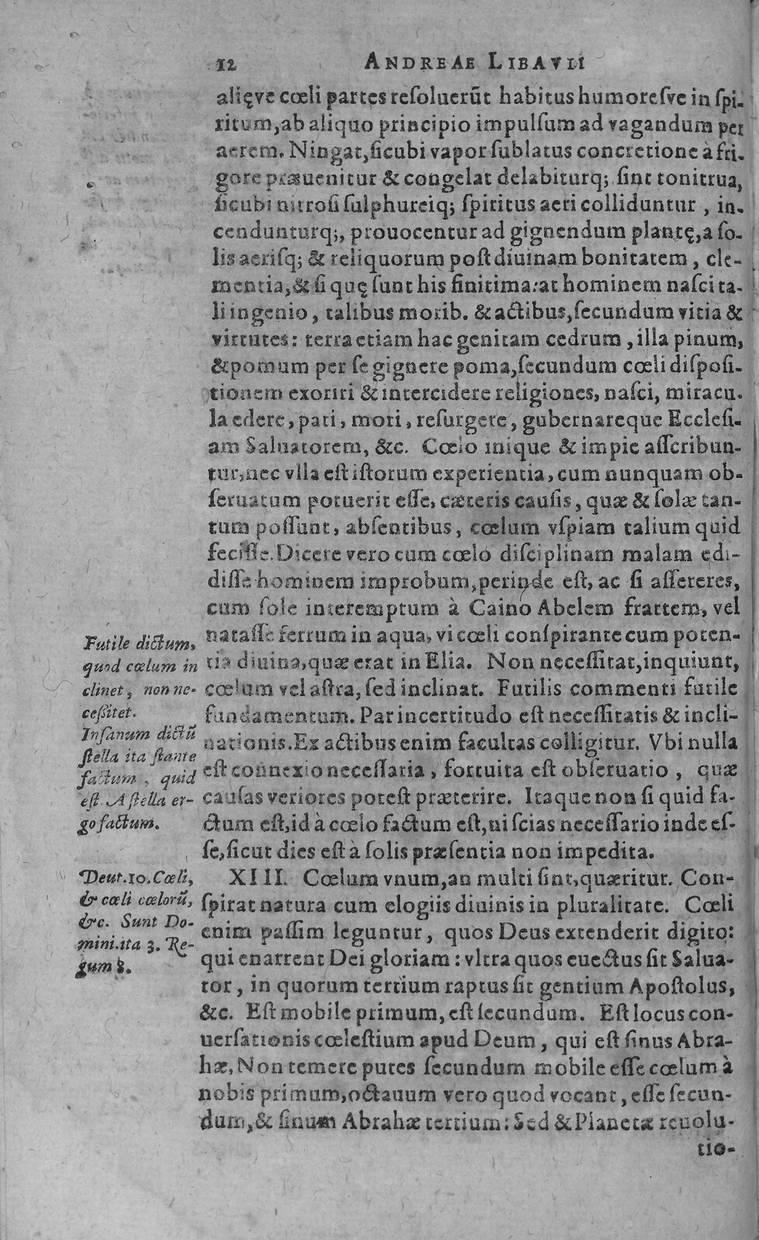 12 ANDREAE LIBAVII
alięve cœli partes resoluerũt habitus humoresve in spi-
ritum, ab aliquo principio impulsum ad vagandum per
aerem. Ningat, sicubi vapor sublatus concretione à fri-
gore præuenitur & congelat delabiturq; sint tonitrua,
sicubi nitrosi sulphureiq; spiritus aeri colliduntur, in-
cendunturq;, prouocentur ad gignendum plantę, a so-
lis aerisq; & reliquorum post diuinam bonitatem, cle-
mentia, & si quę sunt his finitima: at hominem nasci ta-
li ingenio, talibus morib. & actibus, secundum vitia &
virtutes: terra etiam hac genitam cedrum, illa pinum,
& pomum per se gignere poma, secundum cœli disposi-
tionem exoriri & intercidere religiones, nasci, miracu-
la edere, pati, mori, resurgere, gubernareque Ecclesi-
am Saluatorem, &c. Cœlo inique & impie asseribun-
tur, nec vlla est istorum experientia, cum nunquam ob-
seruatum potuerit esse, cæteris causis, quæ & solæ tan-
tum possunt, absentibus, cœlum vspiam talium quid
fecisse. Dicere vero cum cœlo disciplinam malam edi-
disse hominem improbum, perinde est, ac si assereres,
cum sole interemptum à Caino Abelem fratrem, vel
natasse ferrum in aqua, vi cœli conspirante cum poten-
tia diuina, quæ erat in Elia. Non necessitat, inquiunt,
cœlum vel astra, sed inclinat. Futilis commenti futile
fundamentum. Par incertitudo est necessitatis & incli-
nationis. Ex actibus enim facultas colligitur. Vbi nulla
est connexio necessaria, fortuita est obseruatio, quæ
causas veriores potest præterire. Itaque non si quid fa-
ctum est, id à cœlo factum est, ni scias necessario inde es-
se, sicut dies est à solis præsentia non impedita.
Futile dictum,
quod cœlum in
clinet, non ne-
cessitet.
Insanum dictũ
stella ita stante
factum, quid
est. A stella er-
go factum.
XIII. Cœlum vnum, an multi sint, quæritur. Con-
spirat natura cum elogiis diuinis in pluralitate. Cœli
enim passim leguntur, quos Deus extenderit digito:
qui enarrent Dei gloriam: vltra quos euectus sit Salua-
tor, in quorum tertium raptus sit gentium Apostolus,
&c. Est mobile primum, est secundum. Est locus con-
uersationis cœlestium apud Deum, qui est sinus Abra-
hæ, Non temere putes secundum mobile esse cœlum à
nobis primum, octauum vero quod vocant, esse secun-
dum, & sinum Abrahæ tertium: Sed & Planetæ reuolu-
Deut. 10. Cœli,
& cœli cœlorũ,
&c. Sunt Do-
mini. ita 3. Re-
gum 8.
tio-